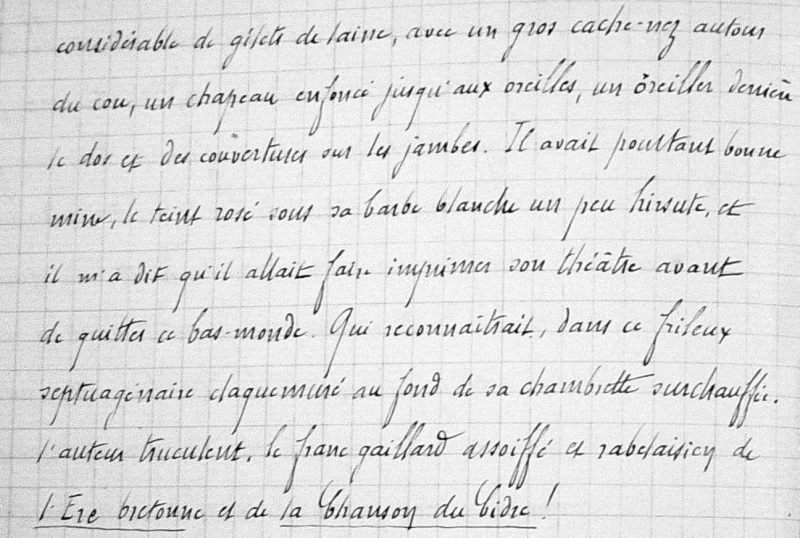 considérable de gilets de laine, avec un gros cache-nez autour
du cou, un chapeau enfoncé jusqu'aux oreilles, un oreiller derrière
le dos et des couvertures sur les jambes. Il avait pourtant bonne
mine, le teint rosé sous sa barbe blanche un peu hirsute, et
il m'a dit qu'il allait faire imprimer son théâtre avant
de quitter ce bas-monde. Qui reconnaitrait, dans ce frileux
septuagénaire claquemuré au fond de sa chambrette surchauffée.
l'auteur truculent, le franc gaillard assoiffé et rabelaisien de
l'Ere bretonne et de la Chanson du Cidre !